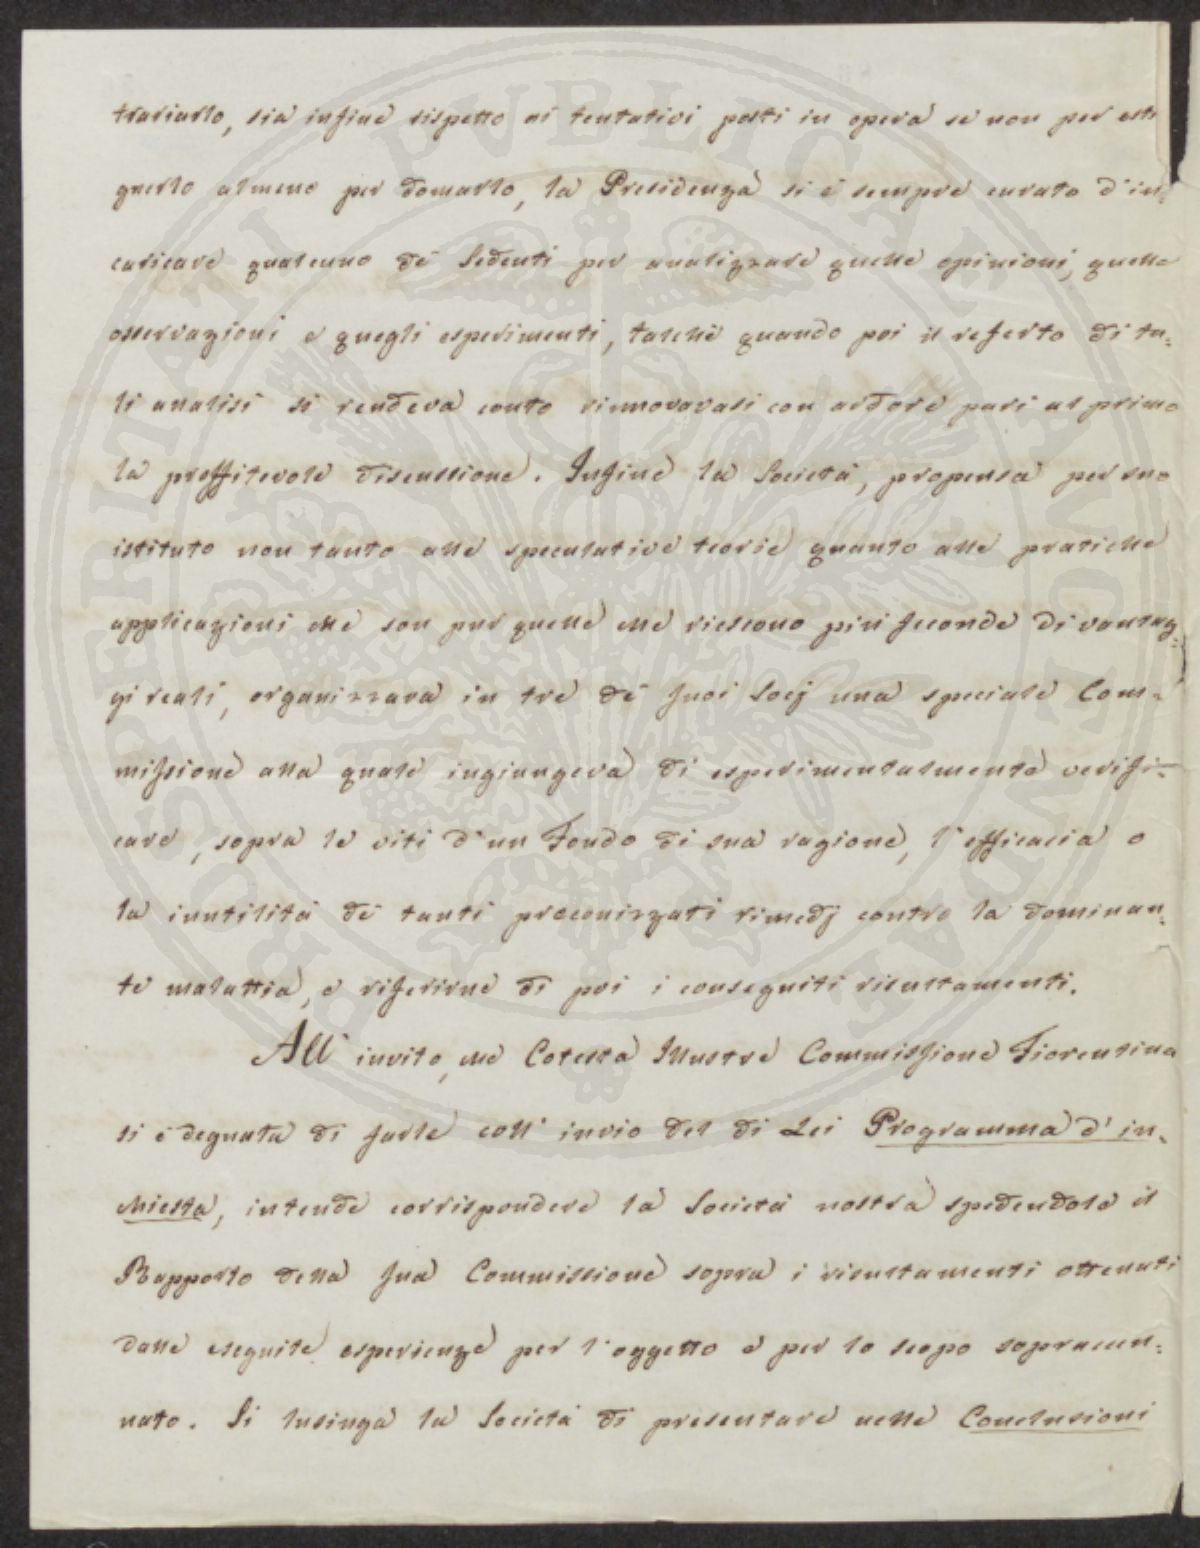 trariarlo, sia infine rispetto ai tentativi posti in opera se non per esti
guerlo almeno per domarlo, la Presidenza si è sempre curata d'in,
caricare qualcuno de' Sedenti per analizzare quelle opinioni, quelle
osservazioni e quegli esperimenti, talchè quando poi il referto di ta,
li analisi si rendeva conto rinnovavasi con ardore pari al primo
la proffitevole discussione. Infine la Società, propensa per suo
istituto non tanto alle speculative teorie quanto alle pratiche
applicazioni che son pur quelle che riescono più feconde di vantag,
gi reali, organizzava in tre de' suoi Socj una speciale Com,
missione alla quale ingiungeva di esperimentalmente verifi=
care, sopra le viti d'un Fondo di sua ragione, l'efficacia o
la inutilità de' tanti preconizzati rimedj contro la dominan,
te malattia, e riferirne di poi i conseguiti risultamenti.
All' invito, che Cotesta Illustre Commissione Fiorentina
si è degnata di farle coll' invio del di Lei Programma d' in,
chiesta, intende corrispondere la Società nostra spedendole il
Rapporto della sua Commissione sopra i risultamenti ottenuti
dalle eseguite esperienze per l'oggetto e per lo scopo sopraccen,
nato. Si lusinga la Società di presentare nelle Conclusioni
PROSPERITATI PVBLICAE AVGENDAE